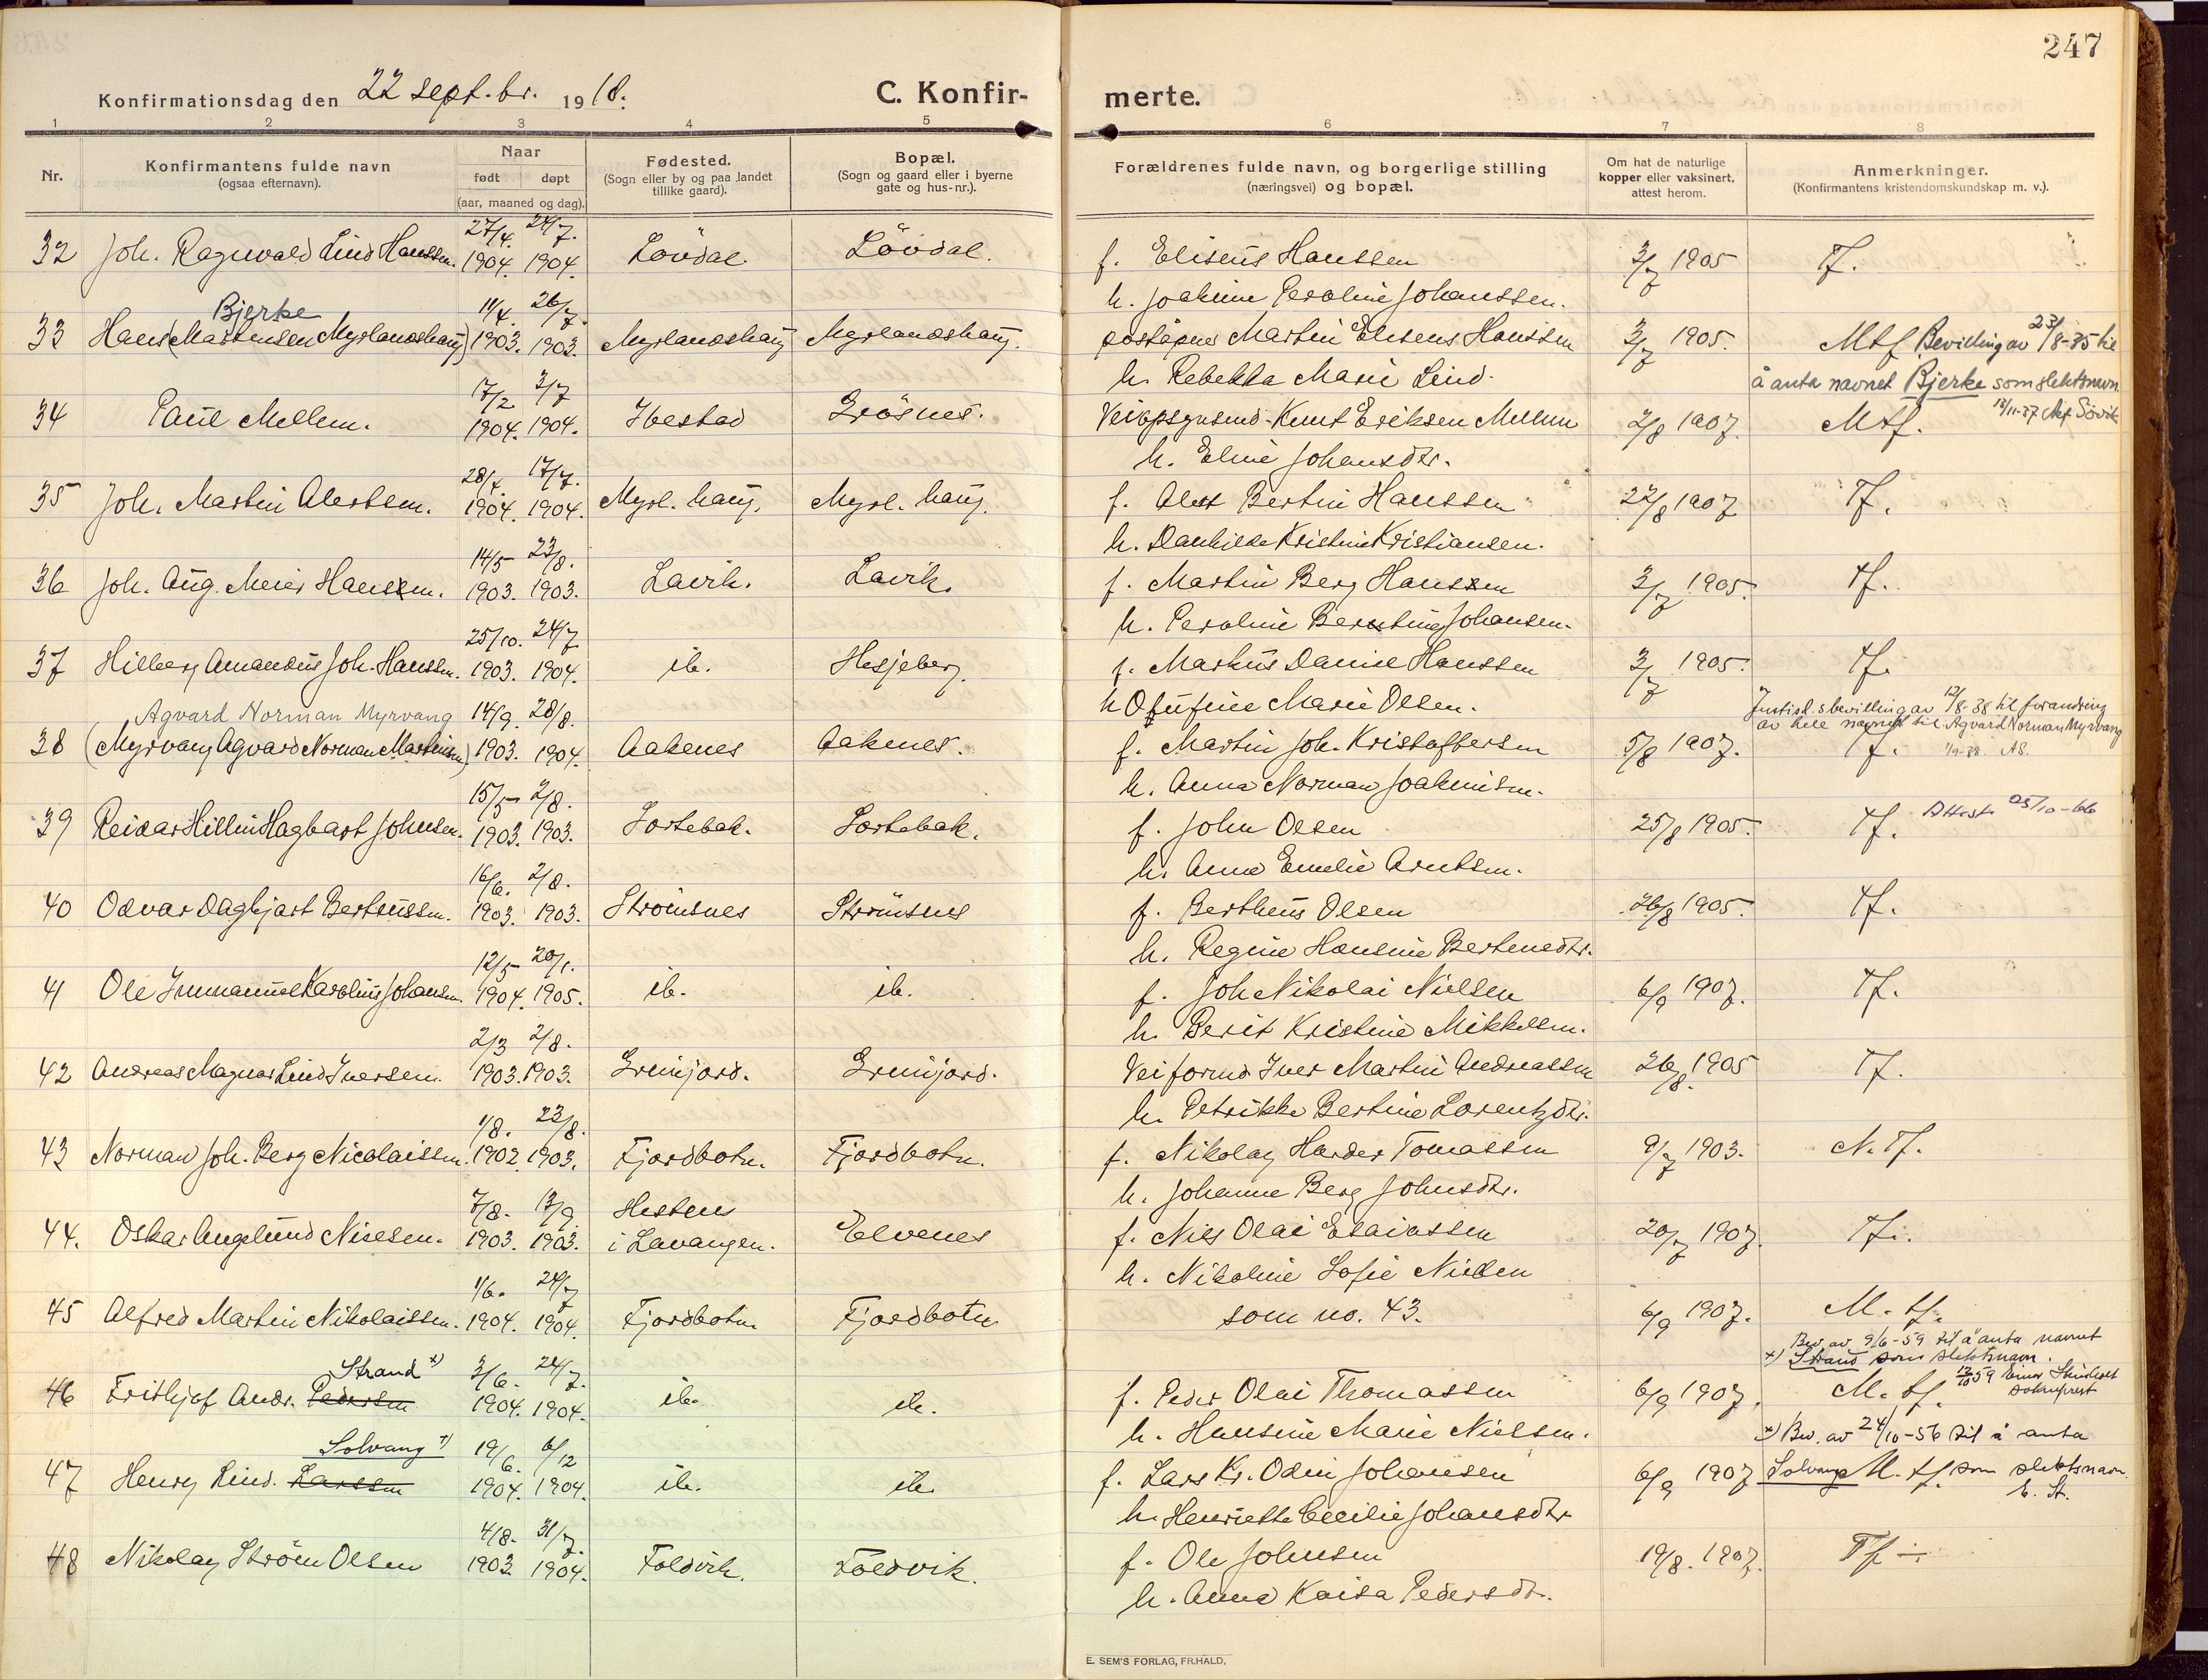 247
Konfirmationsdag den 22 sept.br. 1918.
C. Konfir-
merte.
1 2 3 4 5 6 7 8
Nr.
Konfirmantens fulde navn
(ogsaa efternavn).
Naar
født døpt
(aar, maaned og dag).
Fødested.
(Sogn eller by og paa landet
tillike gaard).
Bopæl.
(Sogn og gaard eller i byerne
gate og hus-nr.).
Forældrenes fulde navn, og borgerlige stilling
(næringsvei) og bopæl.
Om hat de naturlige
kopper eller vaksinert,
attest herom.
Anmerkninger.
(Konfirmantens kristendomskundskap m. v.).
27/4. 24/7.
32 Joh. Ragnvald Lind Hanssen. 1904. 1904. Lövdal. Lövdal. f. Eliseus Hanssen 3/7 1905 Tf.
h. Joakime Peroline Johanssen.
Bjerke 11/4. 26/7.
33 Hans (Martensen Myrlandshaug) 1903. 1903. Myrlandshaug Myrlandshaug. poståpner Martin Elisens Hanssen 3/7 1905. Mtf Bevilling av 23/8-35 til
h. Rebekka Marie Lind. å anta navnet Bjerke som slektsnavn
17/2 3/7 12/11-37 Alf Sövik
34 Paul Mellem. 1904. 1904. Ibestad Grösnes. Veiopsynsmd. Knut Eriksen Mellem 2/8 1907. Mtf.
h. Eline Johansdtr.
28/4. 17/7.
35 Joh. Martin Alertsen. 1904. 1904. Myrl. haug. Myrl. haug. f. Alert Bertin Hanssen 22/8 1907 Tf.
h. Danhilda Kristine Kristiansen.
14/5 23/8.
36 Joh. Aug. Meier Hanssen. 1903. 1903. Lavik. Lavik. f. Martin Berg Hanssen 3/7 1905. Tf.
h. Peroline Berntine Johansen.
25/10. 24/7
37 Hilberg Amandus Joh. Hanssen. 1903. 1904. ib. Hesjeberg. f. Markus Daniel Hanssen 3/7 1905. Tf.
h Olufine Marie Olsen. Justisd.s bevilling av 12/8-38 til forandring
Agvard Norman Myrvang 14/9. 28/8. av hele navnet til Agvard Norman Myrvang
38 (Myrvang Agvard Norman Martinsen) 1903. 1904. Aakenes Aakenes. f. Martin Joh. Kristoffersen 5/8 1907. Tf. 1/9-38. AS.
h. Anna Norman Joakimsen.
15/5 2/8.
39 Reidar Hillin Hagbart Johnsen. 1903. 1903. Sortebak. Sortebak. f. John Olsen 25/8 1905. Tf. Attest 05/10-66
h. Anna Emelie Arntsen.
16/6. 2/8.
40 Odvar Dagbjart Bertheussen. 1903. 1903. Strömsnes Strömsnes f. Bertheus Olsen 26/8 1905. Tf.
h. Regine Hansine Bertensdtr.
12/5 20/1.
41 Ole Immanuel Karolius Johansen. 1904. 1905. ib. ib. f. Joh Nikolai Nielsen 6/9 1907. Tf.
h. Berit Kristine Mikkelsen.
2/3 2/8.
42 Andreas Magnar Lind Iversen. 1903. 1903. Grinjord. Grinjord. Veiformd Iver Martin Andreassen 26/8. 1905 Tf.
h. Petrikke Bertine Lorentzdtr.
1/8. 23/8.
43 Norman Joh. Berg Nicolaissen. 1902. 1903. Fjordbotn. Fjordbotn. f. Nikolay Harder Tomassen 9/7 1903. N. Tf.
h. Johanne Berg Johnsdtr.
7/8. 13/9. Hesten
44. Oskar Angelund Nielsen. 1903. 1903. i Lavangen. Elvenes f. Niels Olai Esaiassen 20/7 1907. Tf.
h. Nikoline Sofie Nielsen
1/6. 24/7
45 Alfred Martin Nikolaissen. 1904. 1904. Fjordbotn Fjordbotn som no. 43. 6/9 1907. M. tf.
Bev av 9/6-59 til å anta navnet
Strand x) 3/6. 24/7. x) Strand som slektsnavn.
46 Frithjof Andr. Pedersen 1904. 1904. ib. ib. f. Peder Olai Thomassen 6/9 1907. M. tf. 12/10 59 Einar sokneprest
h. Hansine Marie Nielsen.
Solvang x) 19/6. 6/12 x) Bev. av 24/10-56 til å anta
47 Henry Lind. Larssen 1904. 1904. ib. ib. f. Lars Kr. Odin Johansen 6/9 1907 Solvang M. tf. som slektsnavn.
h. Henriette Cecilie Johansdtr. E. St.
4/8. 31/7.
48 Nikolay Ström Olsen 1903 1904. Foldvik. Foldvik. f. Ole Johnsen 19/8. 1907. Tf ÷
h. Anna Kaisa Pedersdtr.
E. SEM'S FORLAG, FR.HALD.